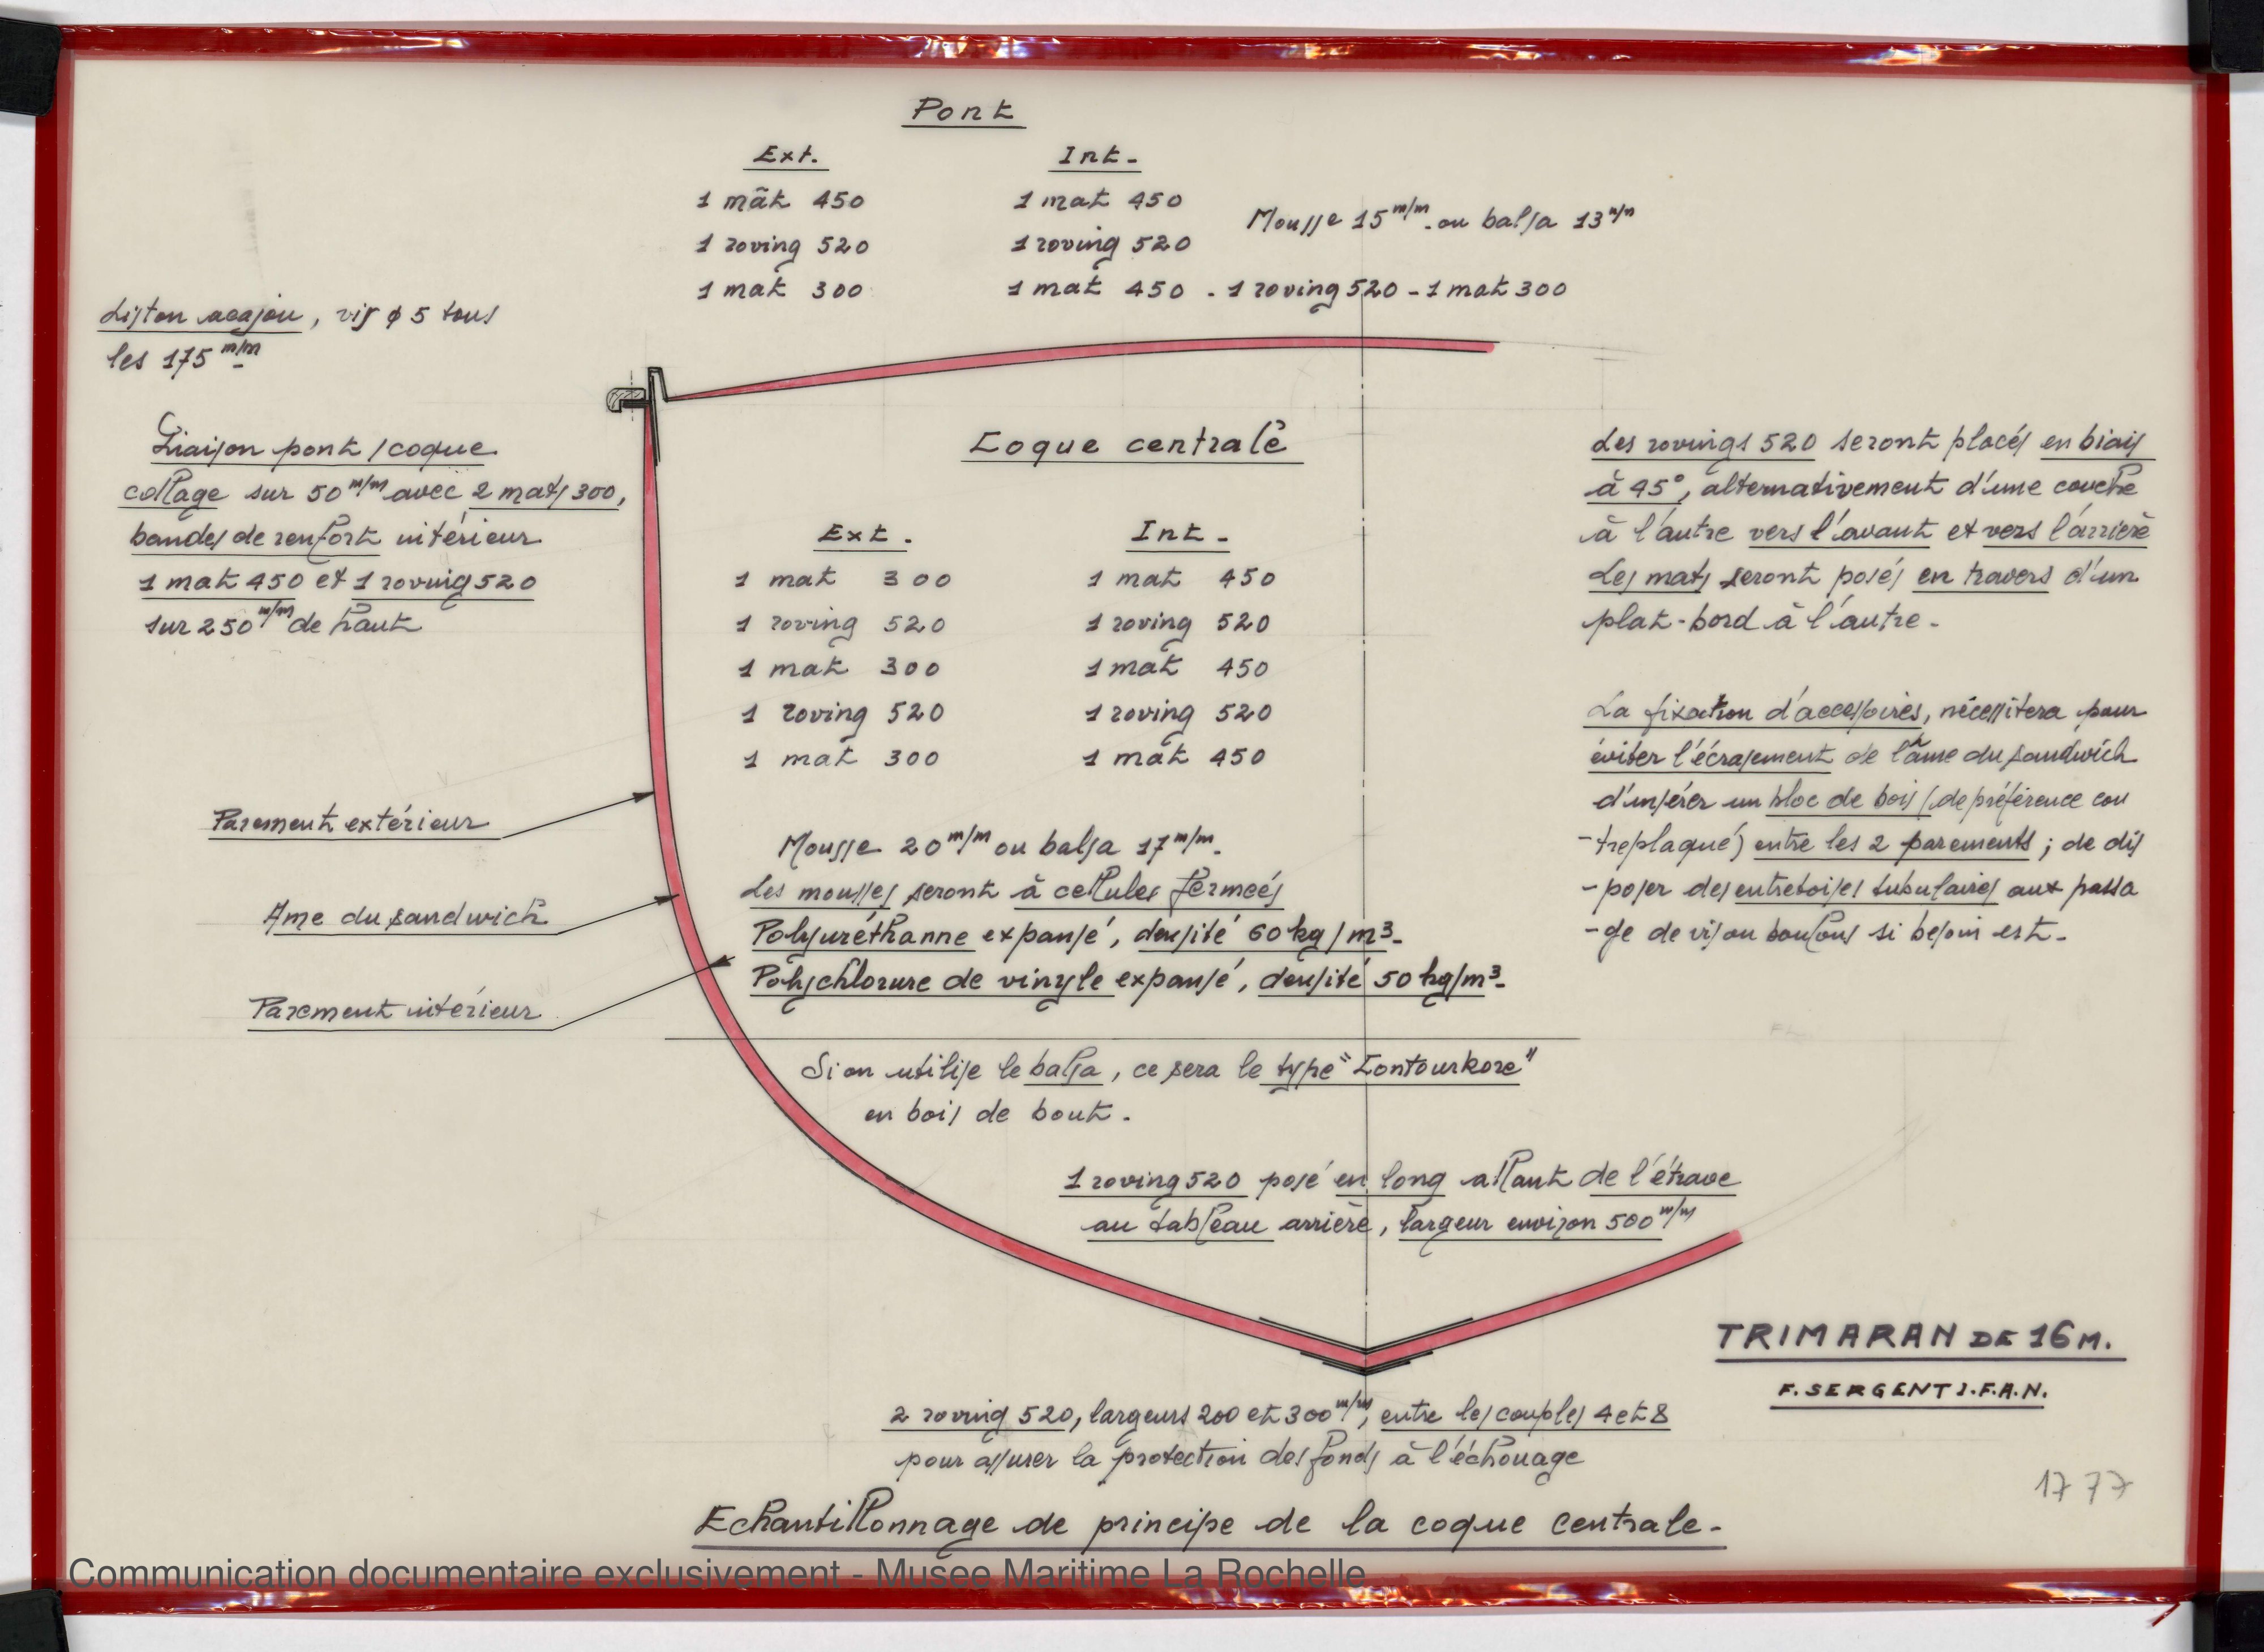 Pont
Ext. Int.
1 mât 450 1 mat 450
1 roving 520 1 roving 520
1 mat 300 1 mat 450 - 1 roving 520 - 1 mat 300
Mousse 15 m/m. ou balsa 13 m/m
Liston acajou, vis ø 5 tous
les 175 m/m
Liaison pont / coque
collage sur 50 m/m avec 2 mats 300,
bandes de renfort intérieur
1 mat 450 et 1 roving 520
sur 250 m/m de haut
Coque centrale
Ext. Int.
1 mat 300 1 mat 450
1 roving 520 1 roving 520
1 mat 300 1 mat 450
1 roving 520 1 roving 520
1 mat 300 1 mat 450
Mousse 20 m/m ou balsa 17 m/m.
Les mousses seront à cellules fermeés
Polyuréthanne expansé, densité 60 kg/m3.
Polychlorure de vinyle expansé, densité 50 kg/m3.
Si on utilise le balsa, ce sera le type "Contourkore"
en bois de bout.
Parement extérieur
Ame du sandwich
Parement intérieur
Les rovings 520 seront placés en biais
à 45°, alternativement d'une couche
à l'autre vers l'avant et vers l'arrière
Les mats seront posés en travers d'un
plat-bord à l'autre.
La fixation d'accessoires, nécessitera pour
éviter l'écrasement de l'âme du sandwich
d'insérer un bloc de bois (de préférence con
-treplaqué) entre les 2 parements ; de dis
-poser des entretoises tubulaires aux passa
-ge de vis ou boulons si besoin est.
1 roving 520 posé en long allant de l'étrave
au tableau arrière, largeur environ 500 m/m
2 roving 520, largeurs 200 et 300 m/m, entre les couples 4 et 8
pour assurer la protection des fonds à l'échouage
TRIMARAN DE 16 M.
F. SERGENT I.F.A.N.
1777
Echantillonnage de principe de la coque centrale.
Communication documentaire exclusivement - Musee Maritime La Rochelle